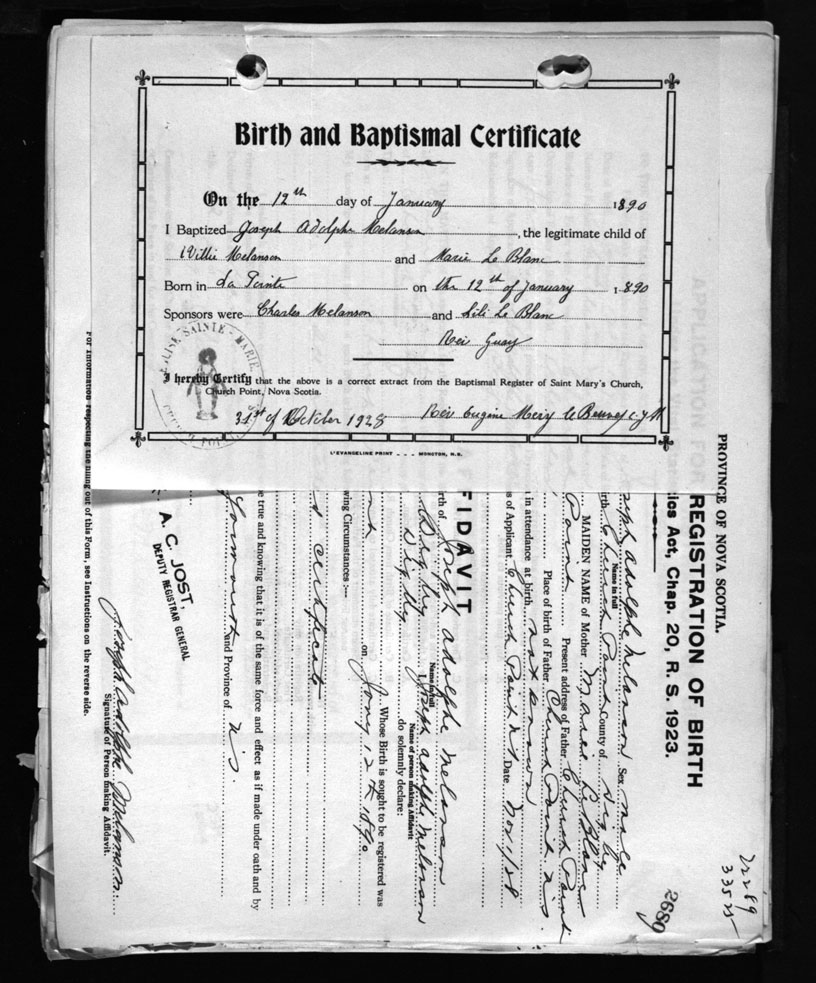 Birth and Baptismal Certificate
On the 12th day of January 1890
I Baptized Joseph Adolphe Melanson, the legitimate child of
Willie Melanson and Marie Le Blanc
Born in La Pointe on the 12th of January 1890
Sponsors were Charles Melanson and Lili Le Blanc
Rev Guay
SAINTE-MARIE
I hereby Certify that the above is a correct extract from the Baptismal Register of Saint Mary's Church,
Church Point, Nova Scotia.
31st of October 1928 Rev Eugine
L'EVANGELINE PRINT - - - MONCTON, N. B.
PROVINCE OF NOVA SCOTIA.
REGISTRATION OF BIRTH
ics Act, Chap. 20, R. S. 1923.
seph adolphe Melanson Sex male
Name in full
irth Church Point County of Digby
MAIDEN NAME of Mother Marie L Blanc
Point Present address of Father Church Point
Place of birth of Father Church Point N.S.
in attendance at birth not known
s of Applicant Church Point N.S. Date Nov 1/28
FIDAVIT
rth of Joseph adolphe Melanson
Name in full
Digby I, Joseph adolphe Melanson
Name of person making Affidavit
Digby do solemnly declare:
Whose Birth is sought to be registered was
on Jany 12th 1890
wing Circumstances:—
certificate
e true and knowing that it is of the same force and effect as if made under oath and by
Yarmouth and Province of N.S.
A. C. JOST.
DEPUTY REGISTRAR GENERAL
Joseph adolph Melanson
Signature of Person making Affidavit.
For Information respecting the filling out of this Form, see Instructions on the reverse side.
2689
72289
33525